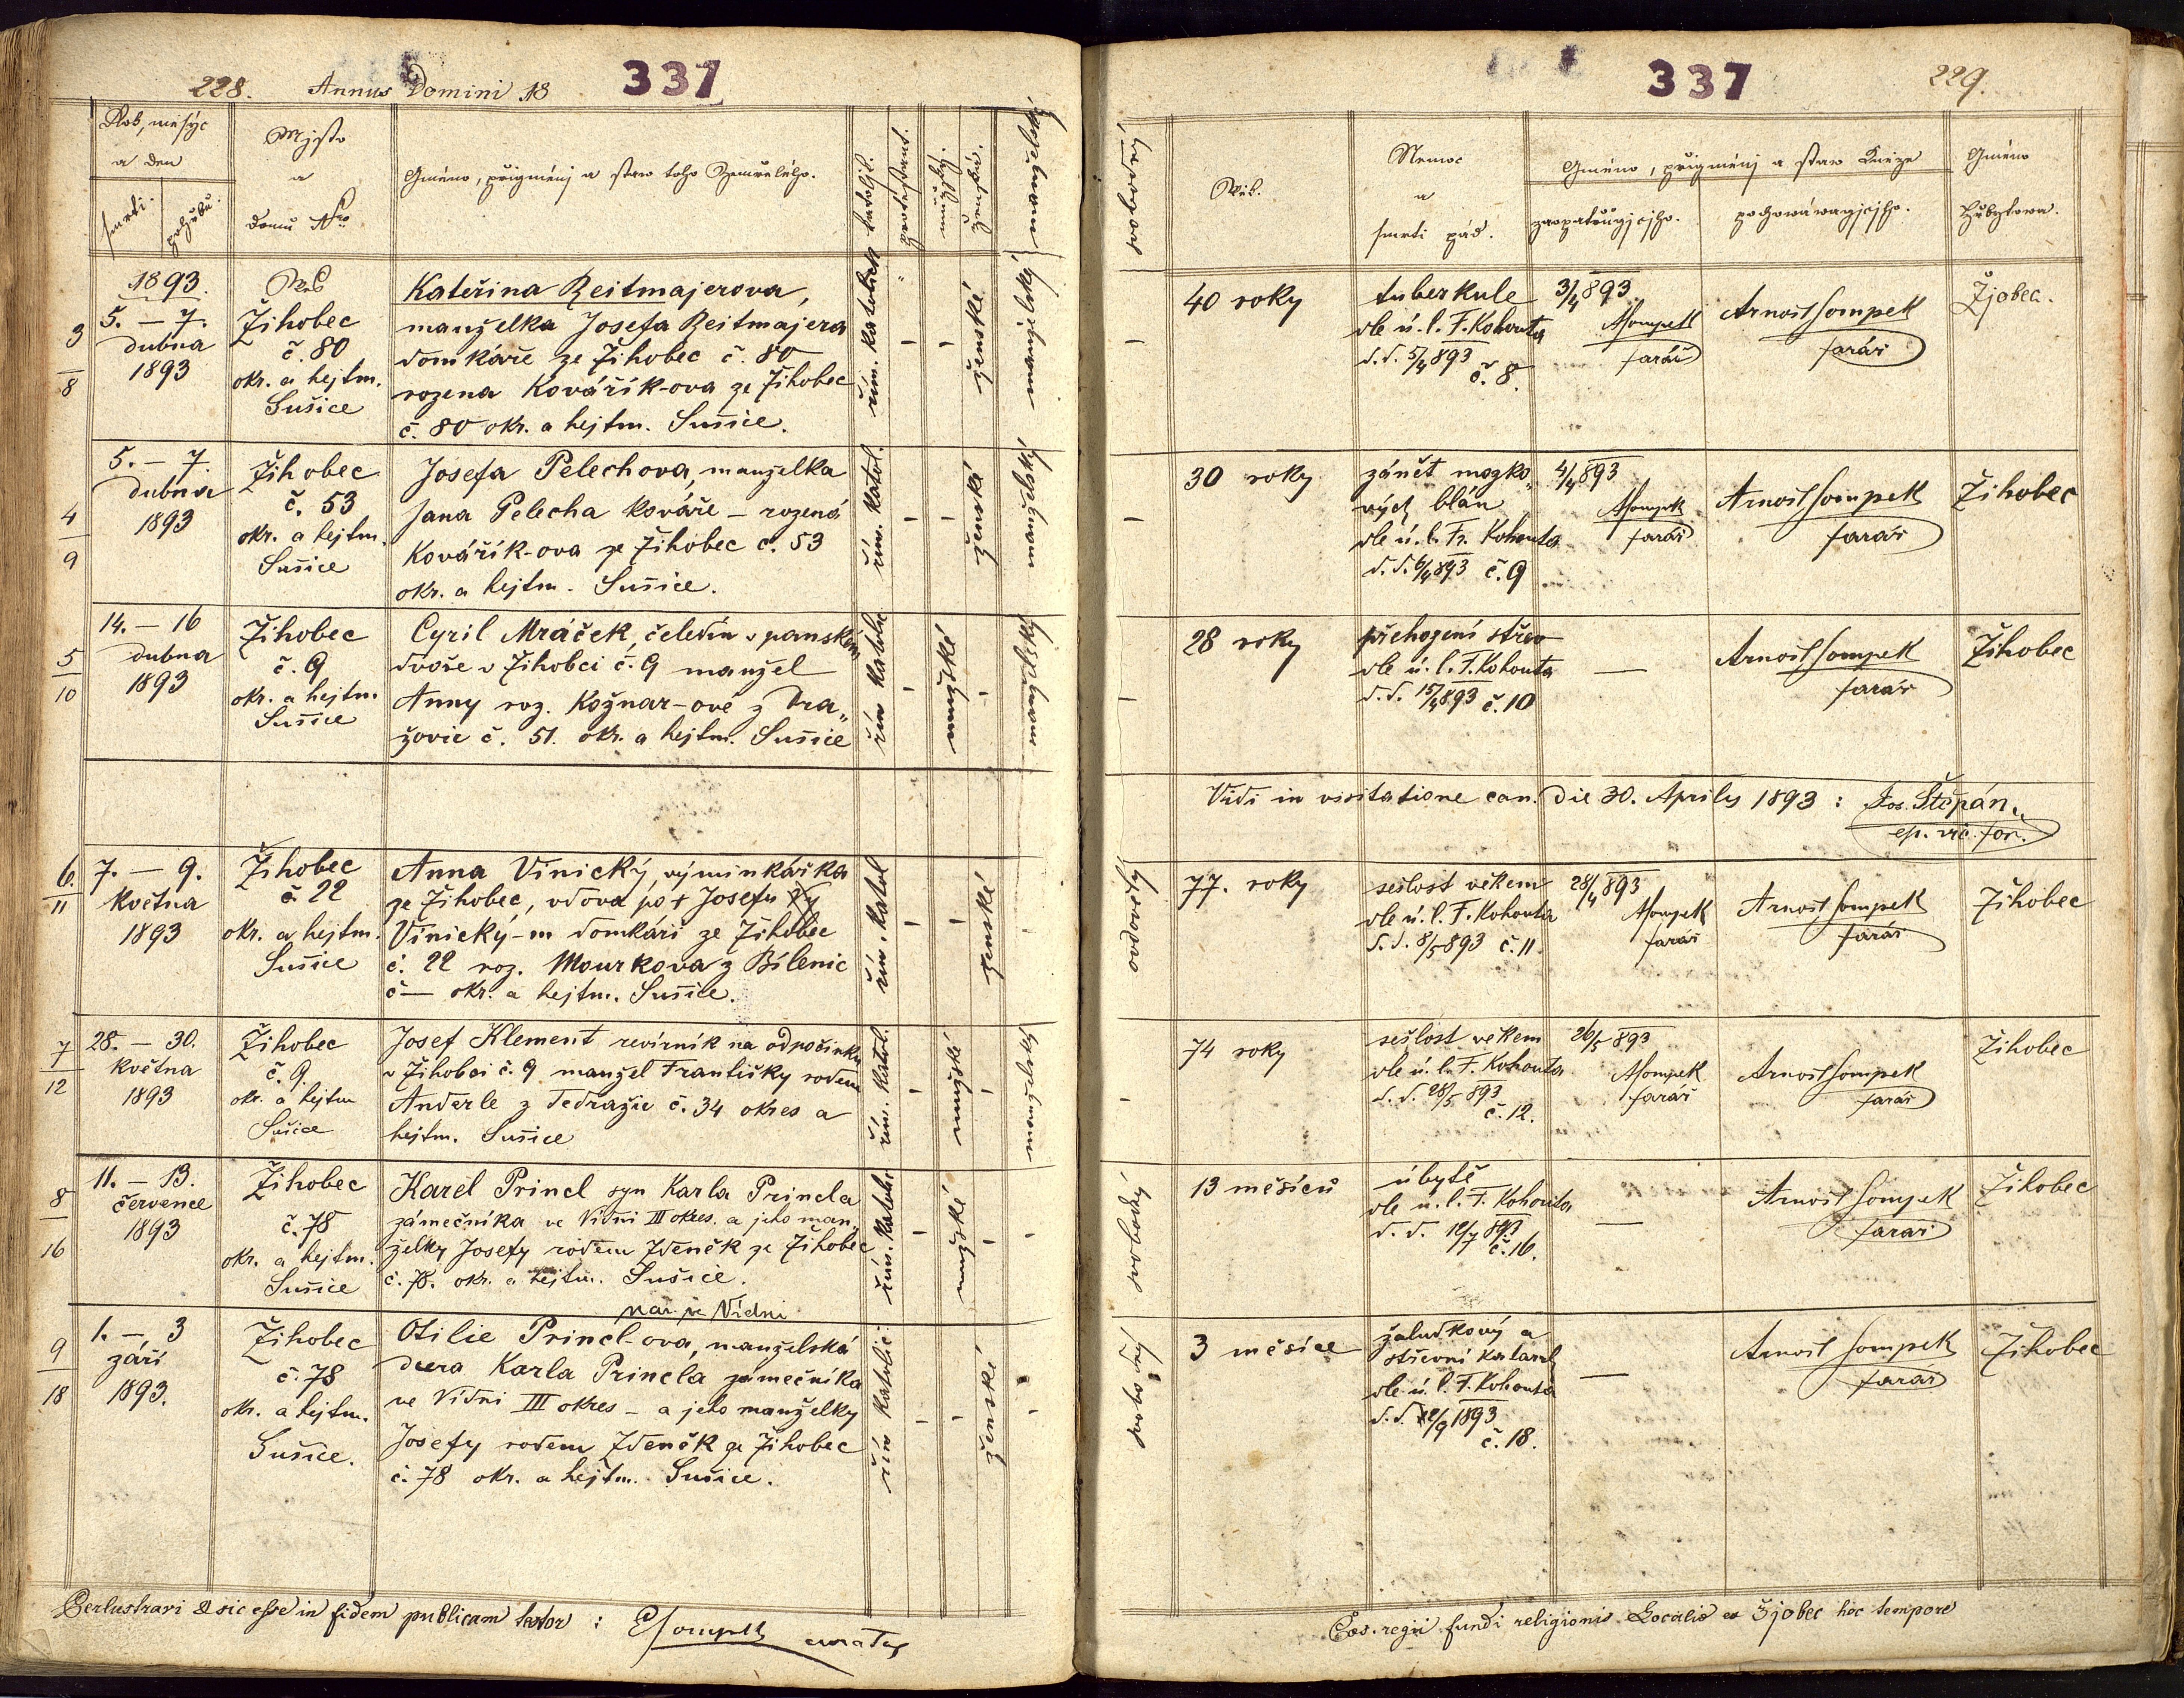 228. Annus Domini 18 337
Rok, měsýc
a den
smrti.
pohřbu.
Mjsto
a
domu Nro
Gméno, přigmenj a staw toho Zemřelého.
katoljk.
protestant.
mužský.
ženská.
manželský,
1893.
3
8
5. – 7.
dubna
1893
Wes
Žihobec
č. 80
okr. a hejtm.
Sušice
Kateřina Reitmajerova,
manželka Josefa Reitmajera
domkáře ze Žihobec č. 80
rozena Kovářík-ova ze Žihobec
č. 80 okr. a hejtm. Sušice.
řím. katolick
ženské
manželský
4
9
5. – 7.
dubna
1893
Žihobec
č. 53
okr. a hejtm.
Sušice
Josefa Pelechova, manželka
Jana Pelecha kováře – rozená
Kovářík-ova ze Žihobec č. 53
okr. a hejtm. Sušice.
řím. katol.
ženské
manželský
5
10
14. – 16
dubna
1893
Žihobec
č. 9
okr. a hejtm.
Sušice
Cyril Mráček, čeledín v panském
dvoře v Žihobci č. 9 manžel
Anny roz. Kožnar-ové z Dra„
žovic č. 51. okr. a hejtm. Sušice
řím katolic
mužské
manželský
6.
11
7. – 9.
května
1893
Žihobec
č. 22
okr. a hejtm.
Sušice
Anna Vinický, výminkářka
ze Žihobec, vdova po † Josefu
Vinický-m domkáři ze Žihobec
č. 22 roz. Mourkova z Bílenic
č — okr. a hejtm. Sušice.
řím. katol
ženské
7
12
28. – 30.
května
1893
Žihobec
č. 9.
okr. a hejtm
Sušice
Josef Klement revírník na odpočinku
v Žihobci č. 9 manžel Františky rodem
Anderle z Tedražic č. 34 okres a
hejtm. Sušice
řím. katol.
mužské
manželský
8
16
11. – 13.
července
1893
Žihobec
č. 78
okr. a hejtm.
Sušice
Karel Princl syn Karla Princla
zámečníka ve Vídni III okres. a jeho man„
želky Josefy rodem Zdeněk ze Žihobec
č. 78. okr. a hejtm. Sušice.
řím. katolic
mužské
9
18
1. – 3
září
1893.
Žihobec
č. 78
okr. a hejtm.
Sušice.
nar. ve Vídni
Otilie Princl-ova, manželská
dcera Karla Princla zámečníka
ve Vídni III okres – a jeho manželky
Josefy rodem Zdeněk ze Žihobec
č. 78 okr. a hejtm. Sušice.
řím katolic:
ženské
Perlustravi & sic esse in fidem publicam testor : Sompek curatus
337 229.
swobodný,
Wěk.
Nemoc
a
smrti pád.
Gméno, přigmenj a staw Kněze
zaopatřugjcjho.
pochowáwagjcjho.
Gméno
Hřbytowa.
40 roky
tuberkule
dle ú. l. F. Kohouta
d. d. 5/4 893
č. 8.
3/4 893
ASompek
farář
Arnošt Sompek
farář
Žjobec.
30 roky
zánět mozko„
vých blán
dle ú. l. Fr. Kohouta
d. d. 6/4 893 č. 9
4/4 893
ASompek
farář
Arnošt Sompek
farář
Žihobec
28 roky
přehození střev
dle ú. l. F. Kohouta
d. d. 15/4 893 č. 10
—
Arnošt Sompek
farář
Žihobec
Vidi in visitatione can. die 30. Aprilis 1893 : Jos. Štěpán,
ep. vic. for.
ovdovělý
77. roky
sešlost věkem
dle ú. l. F. Kohouta
d. d. 8/5 893 č. 11.
28/4 893
ASompek
farář
Arnošt Sompek
farář
Žihobec
74 roky
sešlost věkem
dle ú. l. F. Kohouta
d. d. 28/5 893
č. 12.
26/5 893
ASompek
farář
Arnošt Sompek
farář
Žihobec
svobodný
13 měsíců
úbytě
dle ú. l. F. Kohouta
d. d. 12/7 893
č. 16.
—
Arnošt Sompek
farář
Žihobec
svobodný
3 měsíce
žaludkový a
střevní katarrh
dle ú. l. F. Kohouta
d. d. 2/9 1893
č. 18.
—
Arnošt Sompek
farář
Žihobec
Cæs. regii fundi religionis Localis ex Žjobec hoc tempore